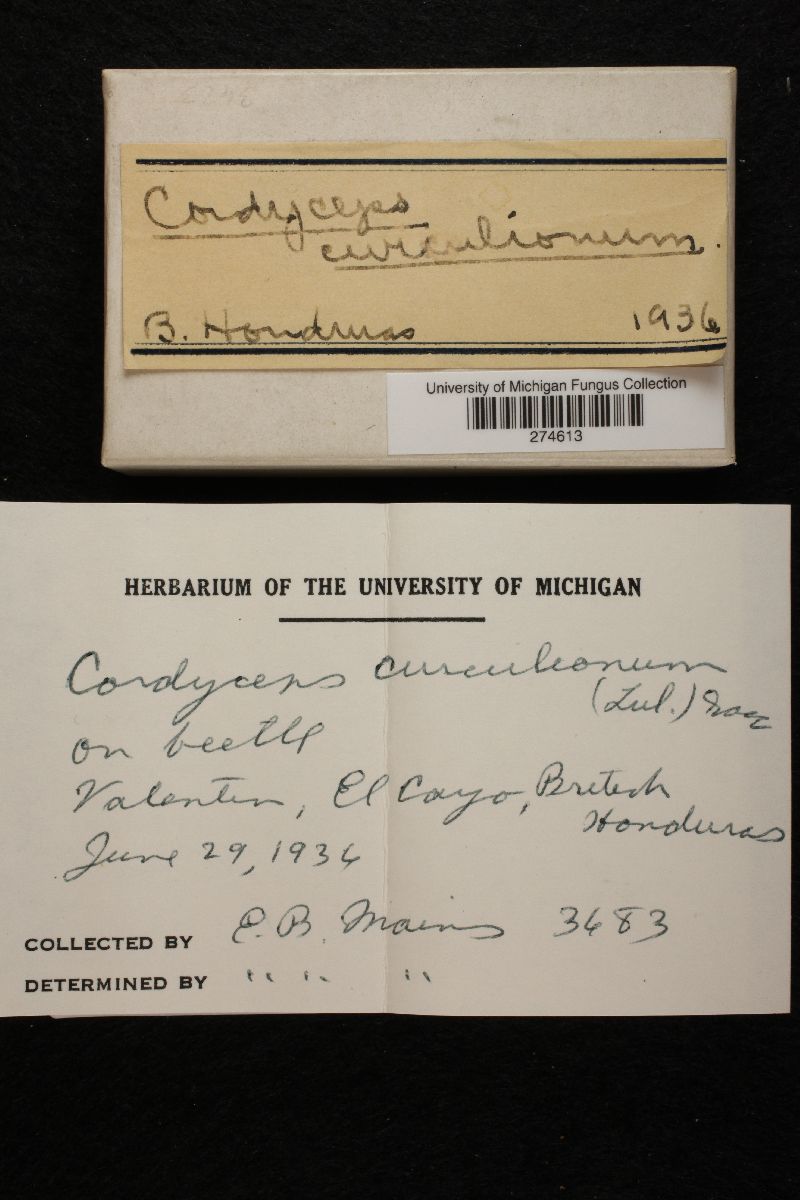 Cordyceps
curculionum.
B. Honduras 1936
University of Michigan Fungus Collection
274613
HERBARIUM OF THE UNIVERSITY OF MICHIGAN
Cordyceps curculionum
(Tul.) Sacc
on beetle
Valentin, El Cayo, British
Honduras
June 29, 1936
COLLECTED BY E. B. Mains 3683
DETERMINED BY " " "